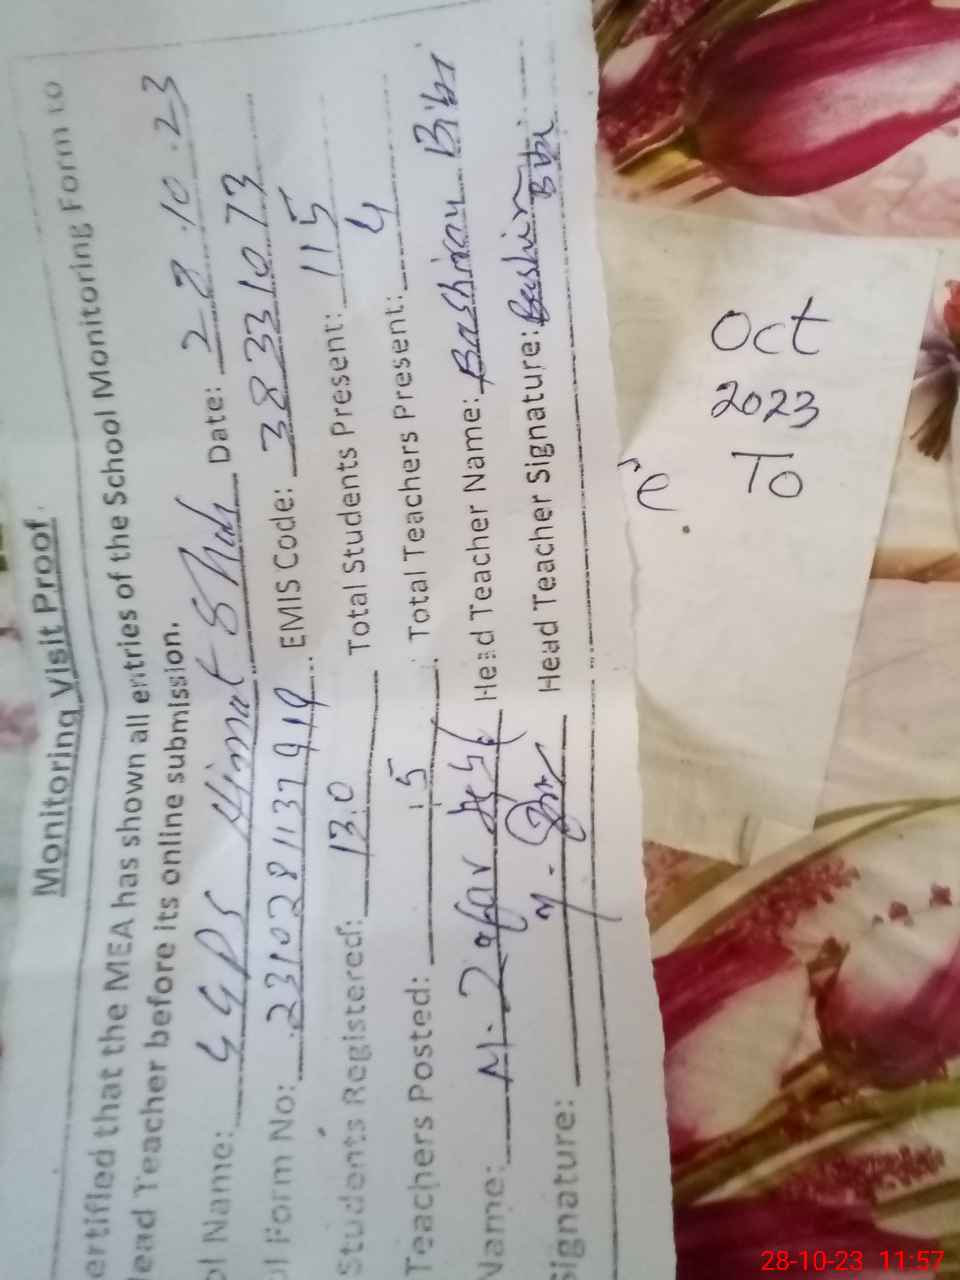 Monitoring Visit Proof
ertified that the MEA has shown all entries of the School Monitoring Form to
lead Teacher before its online submission.
ol Name: GGPS Himat Shah Date: 28.10.23
ol Form No: 2310281137919 EMIS Code: 38331073
Students Registered: 130 Total Students Present: 115
Teachers Posted: 5 Total Teachers Present: 4
Name: M. Zafar Head Teacher Name: Bashiran Bibi
Signature: Head Teacher Signature: Bashiran Bibi
Oct
2023
To
28-10-23 11:57